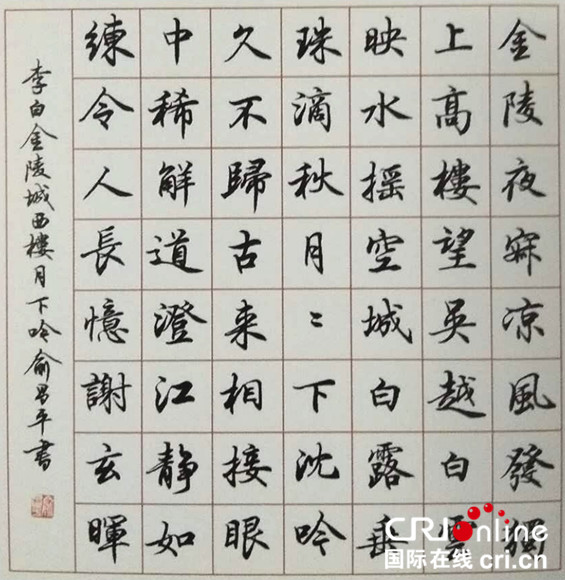 金陵夜寂凉風發獨
上高樓望吳越白雲
映水摇空城白露垂
珠滴秋月〻下沈吟
久不歸古来相接眼
中稀解道澄江静如
練令人長憶謝玄暉
李白金陵城西樓月下吟俞昌平書
CRIOnline
国际在线 cri.cn